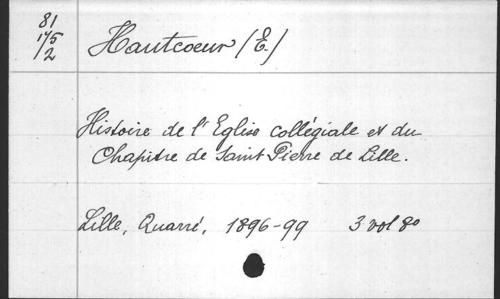 81
175
/2
Hautcoeur (E.)
Histoire de l'Eglise collégiale et du
Chapitre de Saint Pierre de Lille.
Lille, Quarré, 1896-99 3 vol 8o